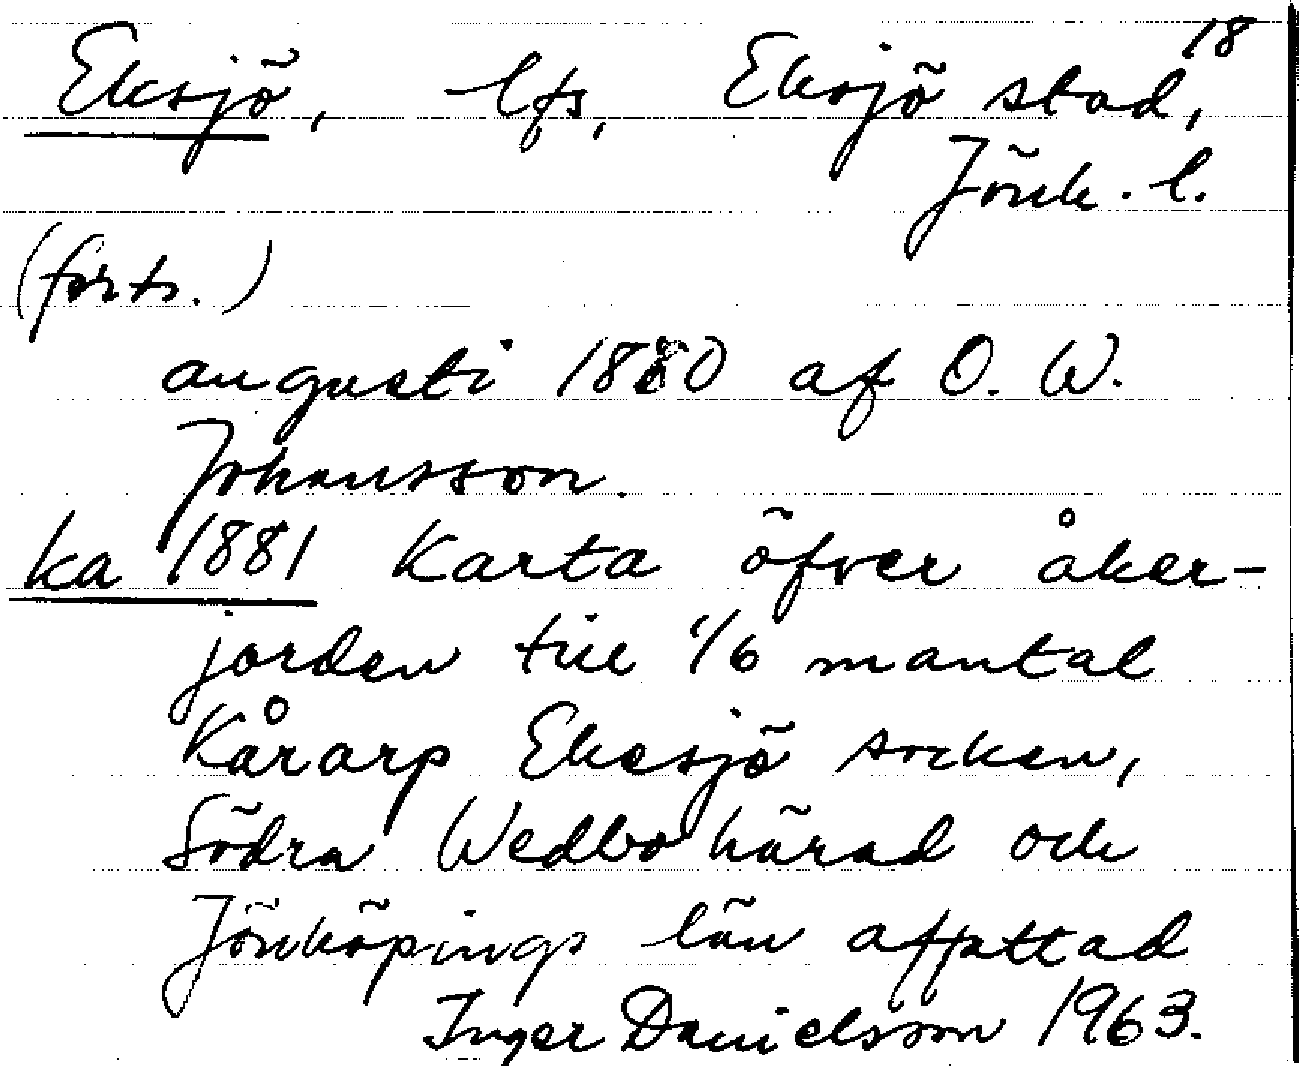 18
Eksjö, lfs, Eksjö stad,
Jönk. l.
(forts.)
augusti 1880 af O. W.
Johansson.
ka 1881 Karta öfver åker-
jorden till 1/6 mantal
Kårarp Ekesjö socken,
Södra Wedbo härad och
Jönköpings län affattad
Inger Danielsson 1963.